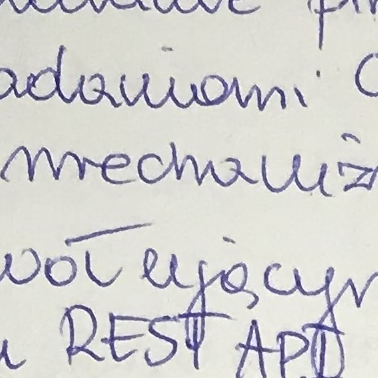 adaniami
mechaniz
wołującym
REST API